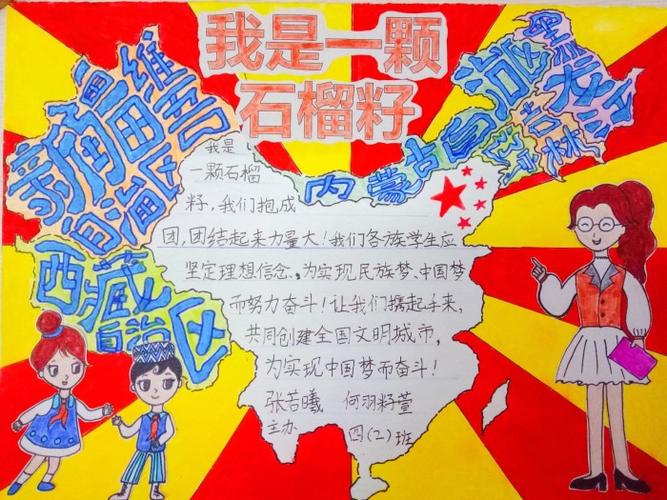 我是一颗
石榴籽
新疆维吾尔
自治区
西藏
自治区
内蒙古自治区
黑龙江
吉林
我是
一颗石榴
籽，我们抱成
团，团结起来力量大！我们各族学生应
坚定理想信念，为实现民族梦、中国梦
而努力奋斗！让我们携起手来，
共同创建全国文明城市，
为实现中国梦而奋斗！
张若曦 何羽籽萱
主办 四（2）班